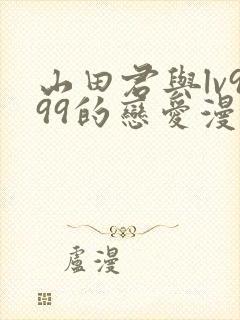 山田君與lv9
99的戀愛漫
盧漫